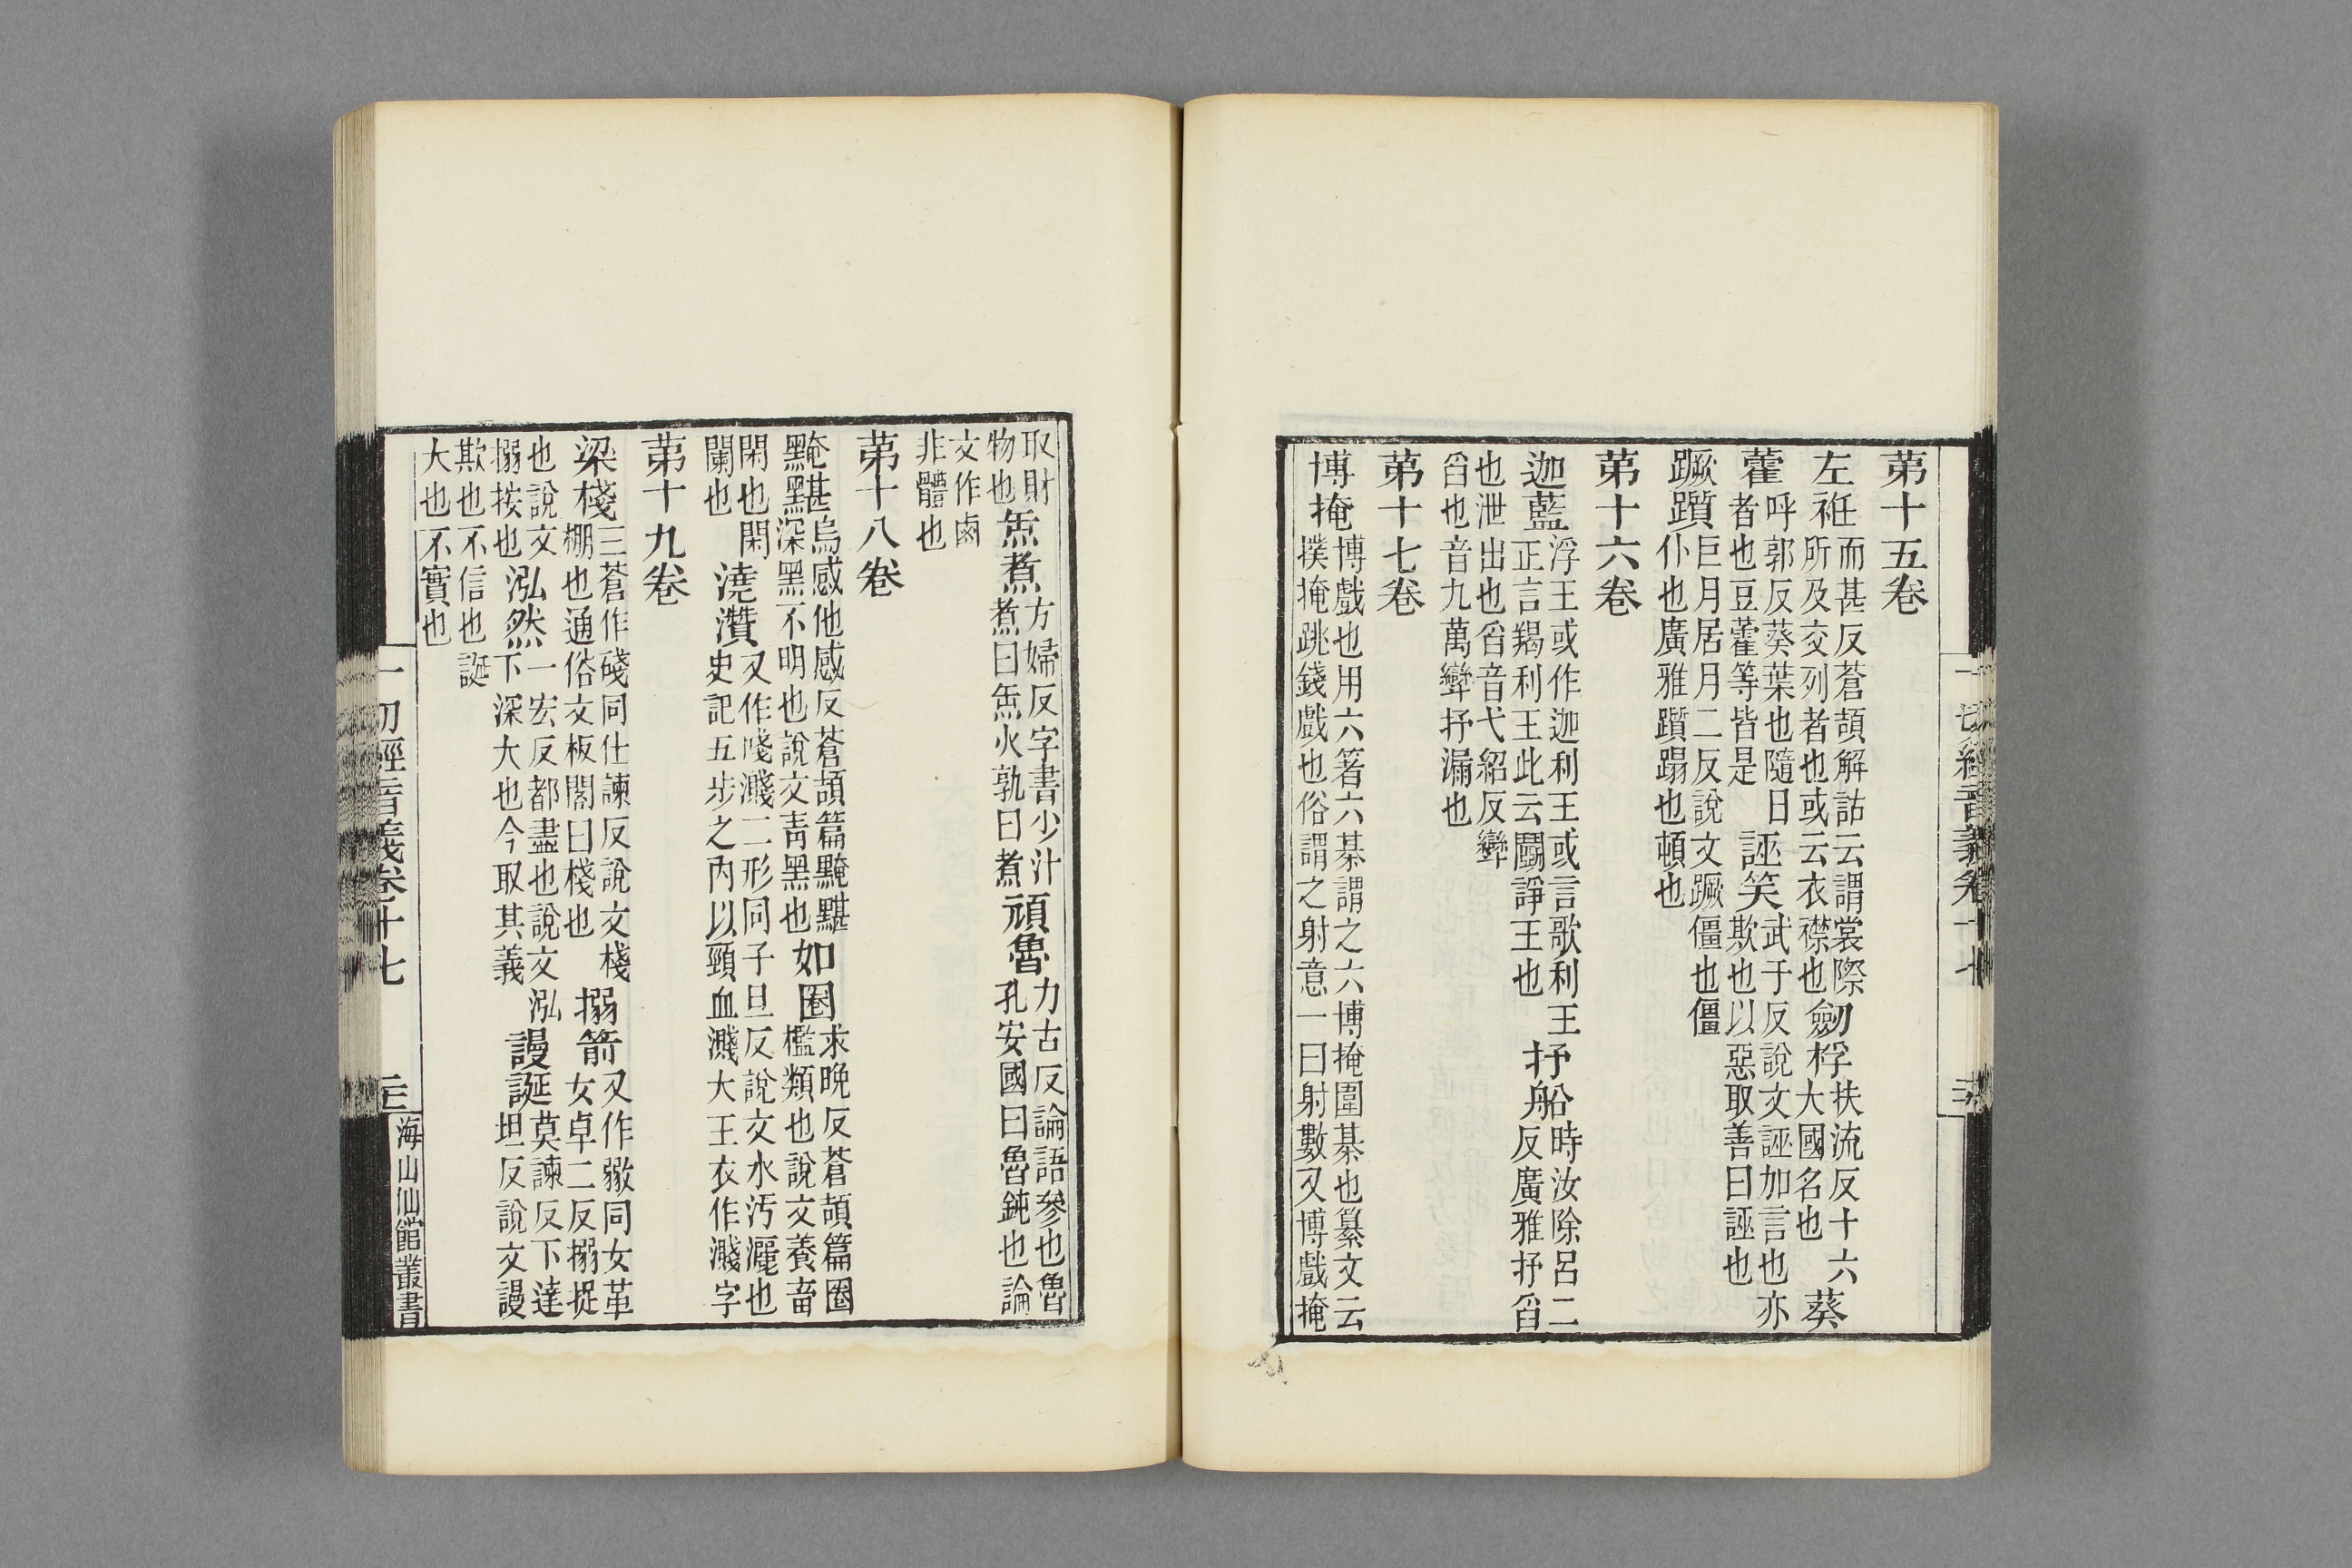 第十五卷
左袵而甚反蒼頡解詁云謂裳際所及交列者也或云衣襟也劒桴扶流反十六大國名也葵
藿呼郭反葵葉也隨日者也豆藿等皆是誣笑武于反說文誣加言也亦欺也以惡取善曰誣也
蹶躓巨月居月二反說文蹶僵也僵仆也廣雅躓蹋也頓也
第十六卷
迦藍浮王或作迦利王或言歌利王正言羯利王此云鬬諍王也抒船時汝除呂二反廣雅抒舀
也泄出也舀音弋紹反㪻舀也音九萬㪻抒漏也
第十七卷
博掩博戲也用六箸六棊謂之六博掩圍棊也纂文云撲掩跳錢戲也俗謂之射意一曰射數又博戲掩
一切經音義卷十七
取財物也缹煮方婦反字書少汁煮曰缹火孰曰煮頑魯力古反論語參也魯孔安國曰魯鈍也論
文作鹵非體也
第十八卷
黤黮烏感他感反蒼頡篇黤黮深黑不明也說文青黑也如圈求晚反蒼頡篇圈檻類也說文養畜
閑也閑闌也澆灒又作㳿濺二形同子旦反說文水汚灑也史記五步之內以頸血濺大王衣作濺字
第十九卷
梁棧三蒼作碊同仕諫反說文棧棚也通俗文板閣曰棧也搦箭又作㑚同女革女卓二反搦捉
也說文搦按也泓然一宏反都盡也說文泓下深大也今取其義謾誕莫諫反下達坦反說文謾
欺也不信也誕大也不實也
一切經音義卷十七
海山仙館叢書